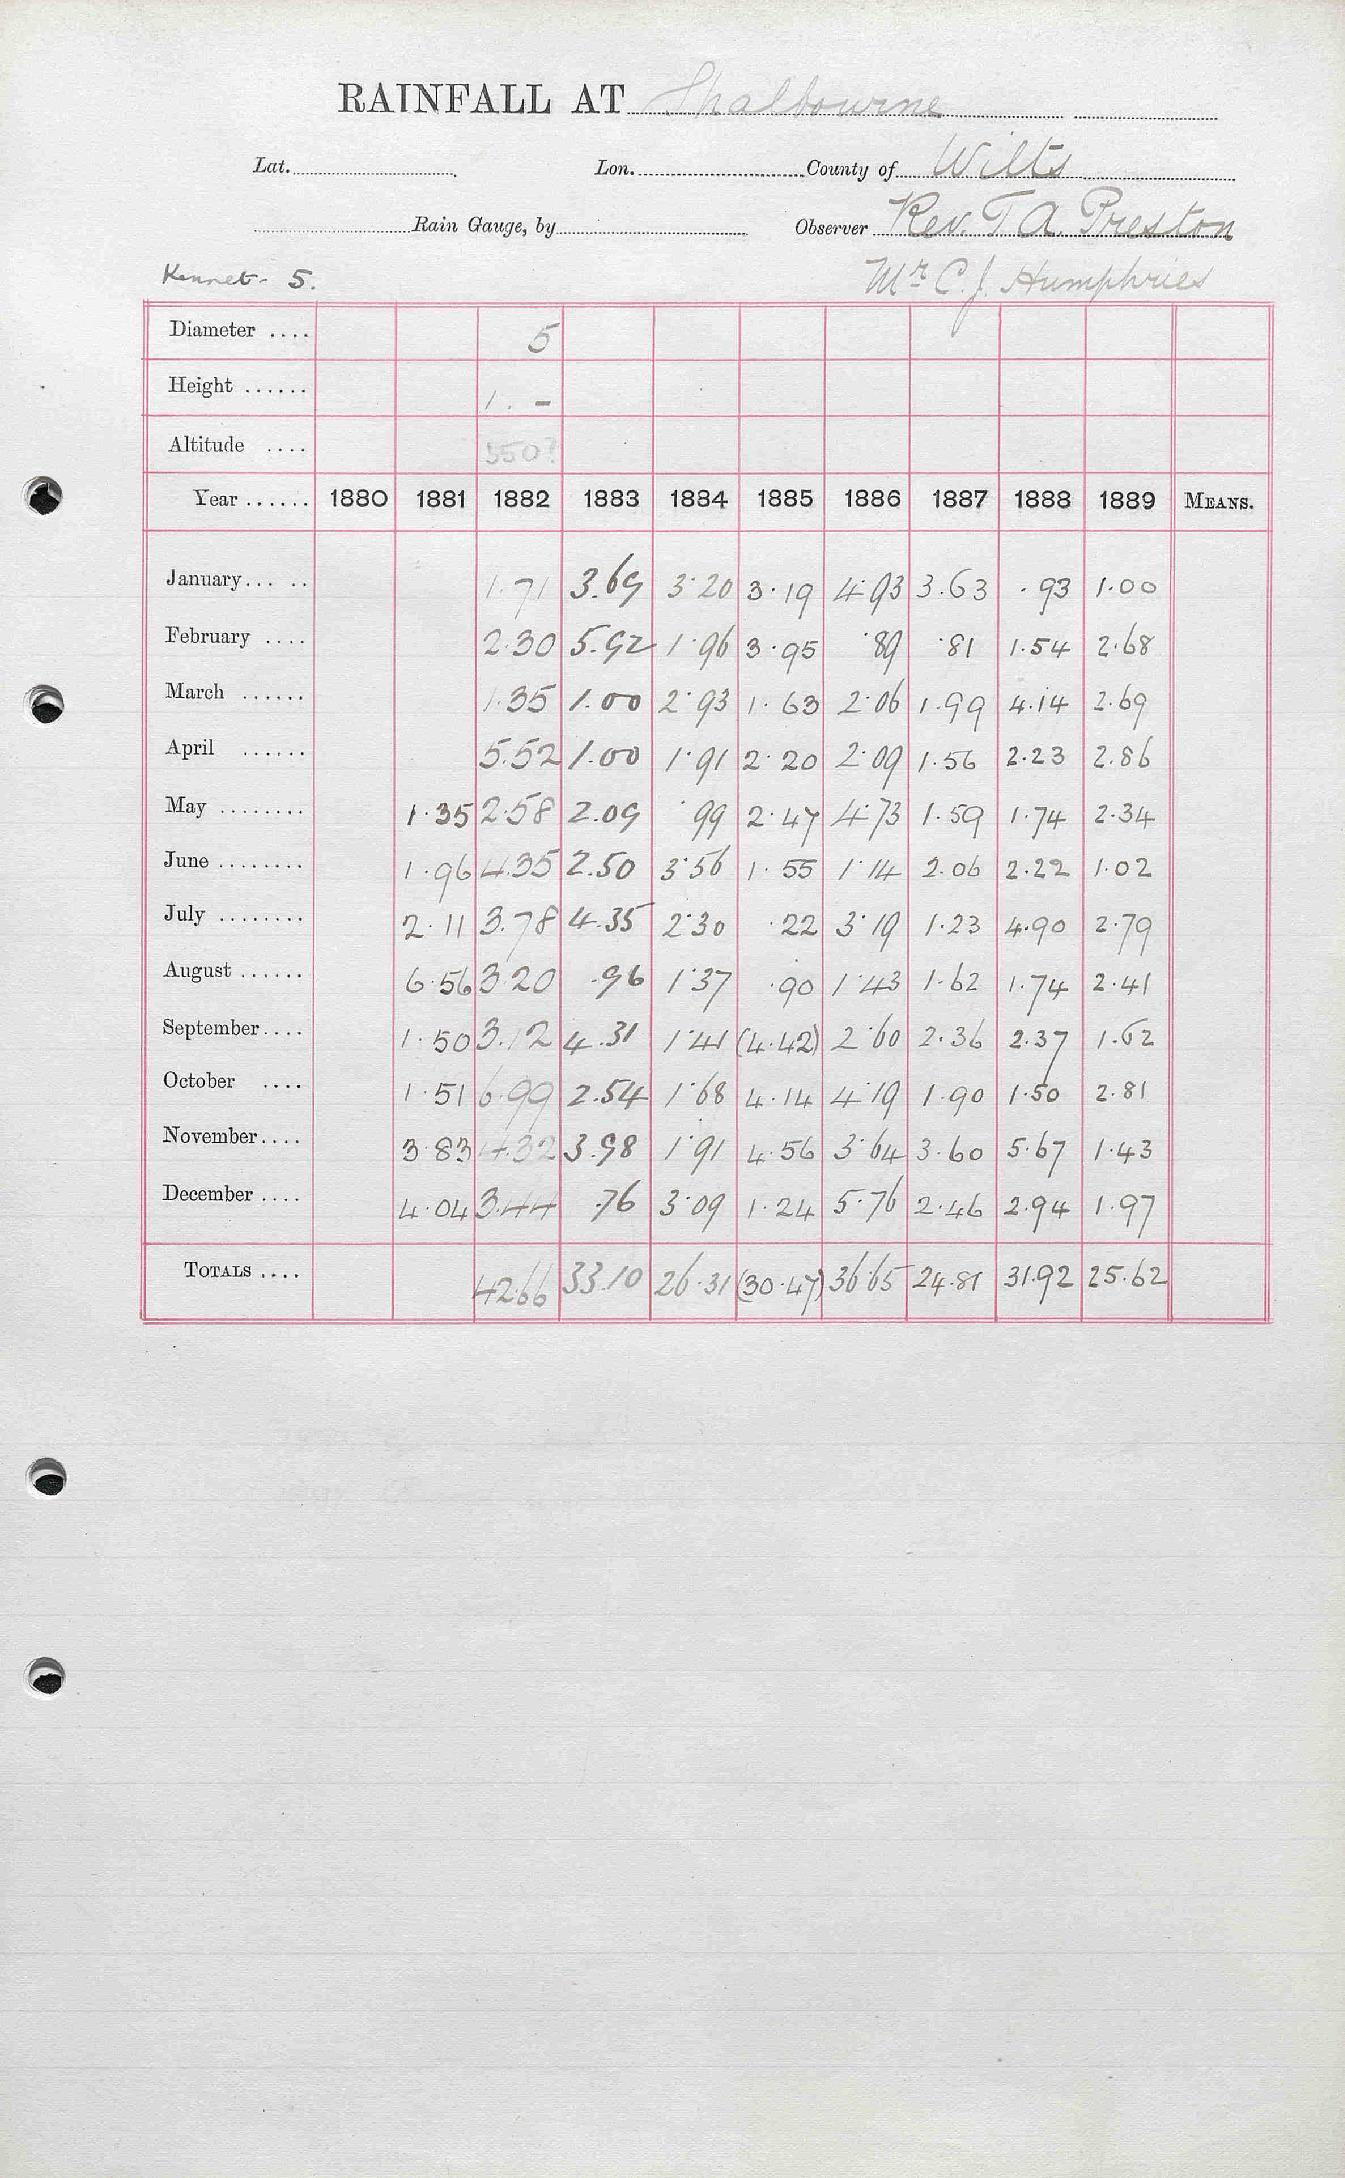 RAINFALL AT Shalbourne
Lat. Lon. County of Wilts
Rain Gauge, by Observer Rev. T A Preston
Kennet - 5. Mr C. J. Humphries
Diameter .... 5
Height ...... 1. -
Altitude .... 350?
Year ...... 1880 1881 1882 1883 1884 1885 1886 1887 1888 1889 MEANS.
January... .. 1.71 3.69 3.20 3.19 4.93 3.63 .93 1.00
February .... 2.30 5.92 1.96 3.95 .89 .81 1.54 2.68
March ...... 1.35 1.00 2.93 1.63 2.06 1.99 4.14 2.69
April ...... 5.52 1.00 1.91 2.20 2.09 1.56 2.23 2.86
May ........ 1.35 2.58 2.09 .99 2.47 4.73 1.59 1.74 2.34
June ........ 1.96 4.35 2.50 3.56 1.55 1.14 2.06 2.22 1.02
July ........ 2.11 3.78 4.35 2.30 .22 3.19 1.23 4.90 2.79
August ...... 6.56 3.20 .96 1.37 .90 1.43 1.62 1.74 2.41
September.... 1.50 3.12 4.31 1.41 (4.42) 2.60 2.36 2.37 1.62
October .... 1.51 6.99 2.54 1.68 4.14 4.19 1.90 1.50 2.81
November.... 3.83 4.32 3.98 1.91 4.56 3.64 3.60 5.67 1.43
December .... 4.04 3.44 .76 3.09 1.24 5.76 2.46 2.94 1.97
TOTALS .... 42.66 33.10 26.31 (30.47) 36.65 24.81 31.92 25.62